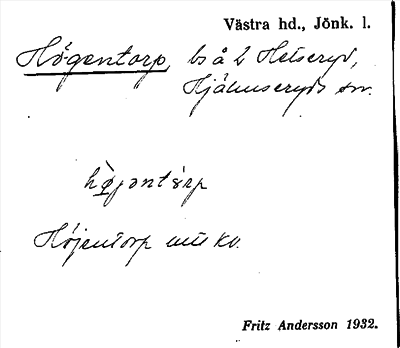 Västra hd., Jönk. l.
Högentorp bs å 2 Helseryd,
Hjälmseryds sn.
Höjentorp utt kv.
Fritz Andersson 1932.